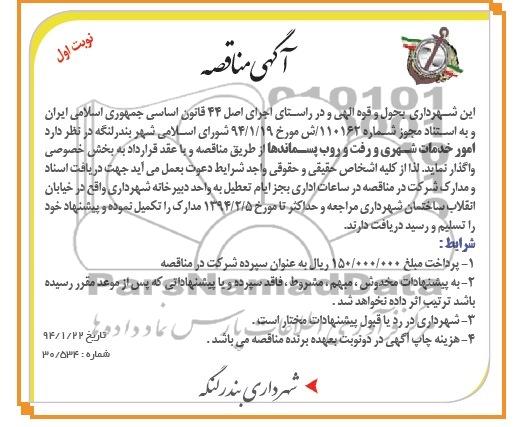 نوبت اول
آگهی مناقصه
این شهرداری بحول و قوه الهی و در راستای اجرای اصل ۴۴ قانون اساسی جمهوری اسلامی ایران
و به استناد مجوز شماره ۱۱۰۱۶۲/ش مورخ ۹۴/۱/۱۹ شورای اسلامی شهر بندرلنگه در نظر دارد
امور خدمات شهری و رفت و روب پسماندها از طریق مناقصه و با عقد قرارداد به بخش خصوصی
واگذار نماید. لذا از کلیه اشخاص حقیقی و حقوقی واجد شرایط دعوت بعمل می آید جهت دریافت اسناد
و مدارک شرکت در مناقصه در ساعات اداری بجز ایام تعطیل به واحد دبیرخانه شهرداری واقع در خیابان
انقلاب ساختمان شهرداری مراجعه و حداکثر تا مورخ ۱۳۹۴/۲/۵ مدارک را تکمیل نموده و پیشنهاد خود
را تسلیم و رسید دریافت دارند.
شرایط :
۱- پرداخت مبلغ ۱۵۰/۰۰۰/۰۰۰ ریال به عنوان سپرده شرکت در مناقصه
۲- به پیشنهادات مخدوش ، مبهم ، مشروط ، فاقد سپرده و یا پیشنهاداتی که پس از موعد مقرر رسیده
باشد ترتیب اثر داده نخواهد شد .
۳- شهرداری در رد یا قبول پیشنهادات مختار است .
۴- هزینه چاپ آگهی در دو نوبت بعهده برنده مناقصه می باشد .
تاریخ ۹۴/۱/۲۲
شماره : ۳۰/۵۳۴
شهرداری بندرلنگه
ParsNamadData